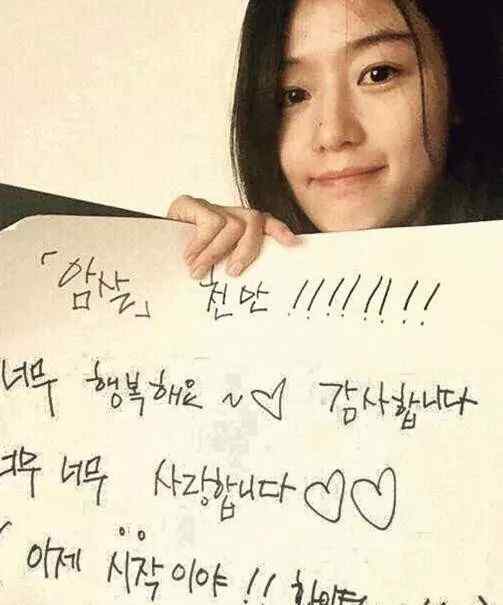 「암살」 천만 !!!!!!!!
너무 행복해요 ~♡ 감사합니다
너무 너무 사랑합니다♡♡
이제 시작이야 !! 화이팅